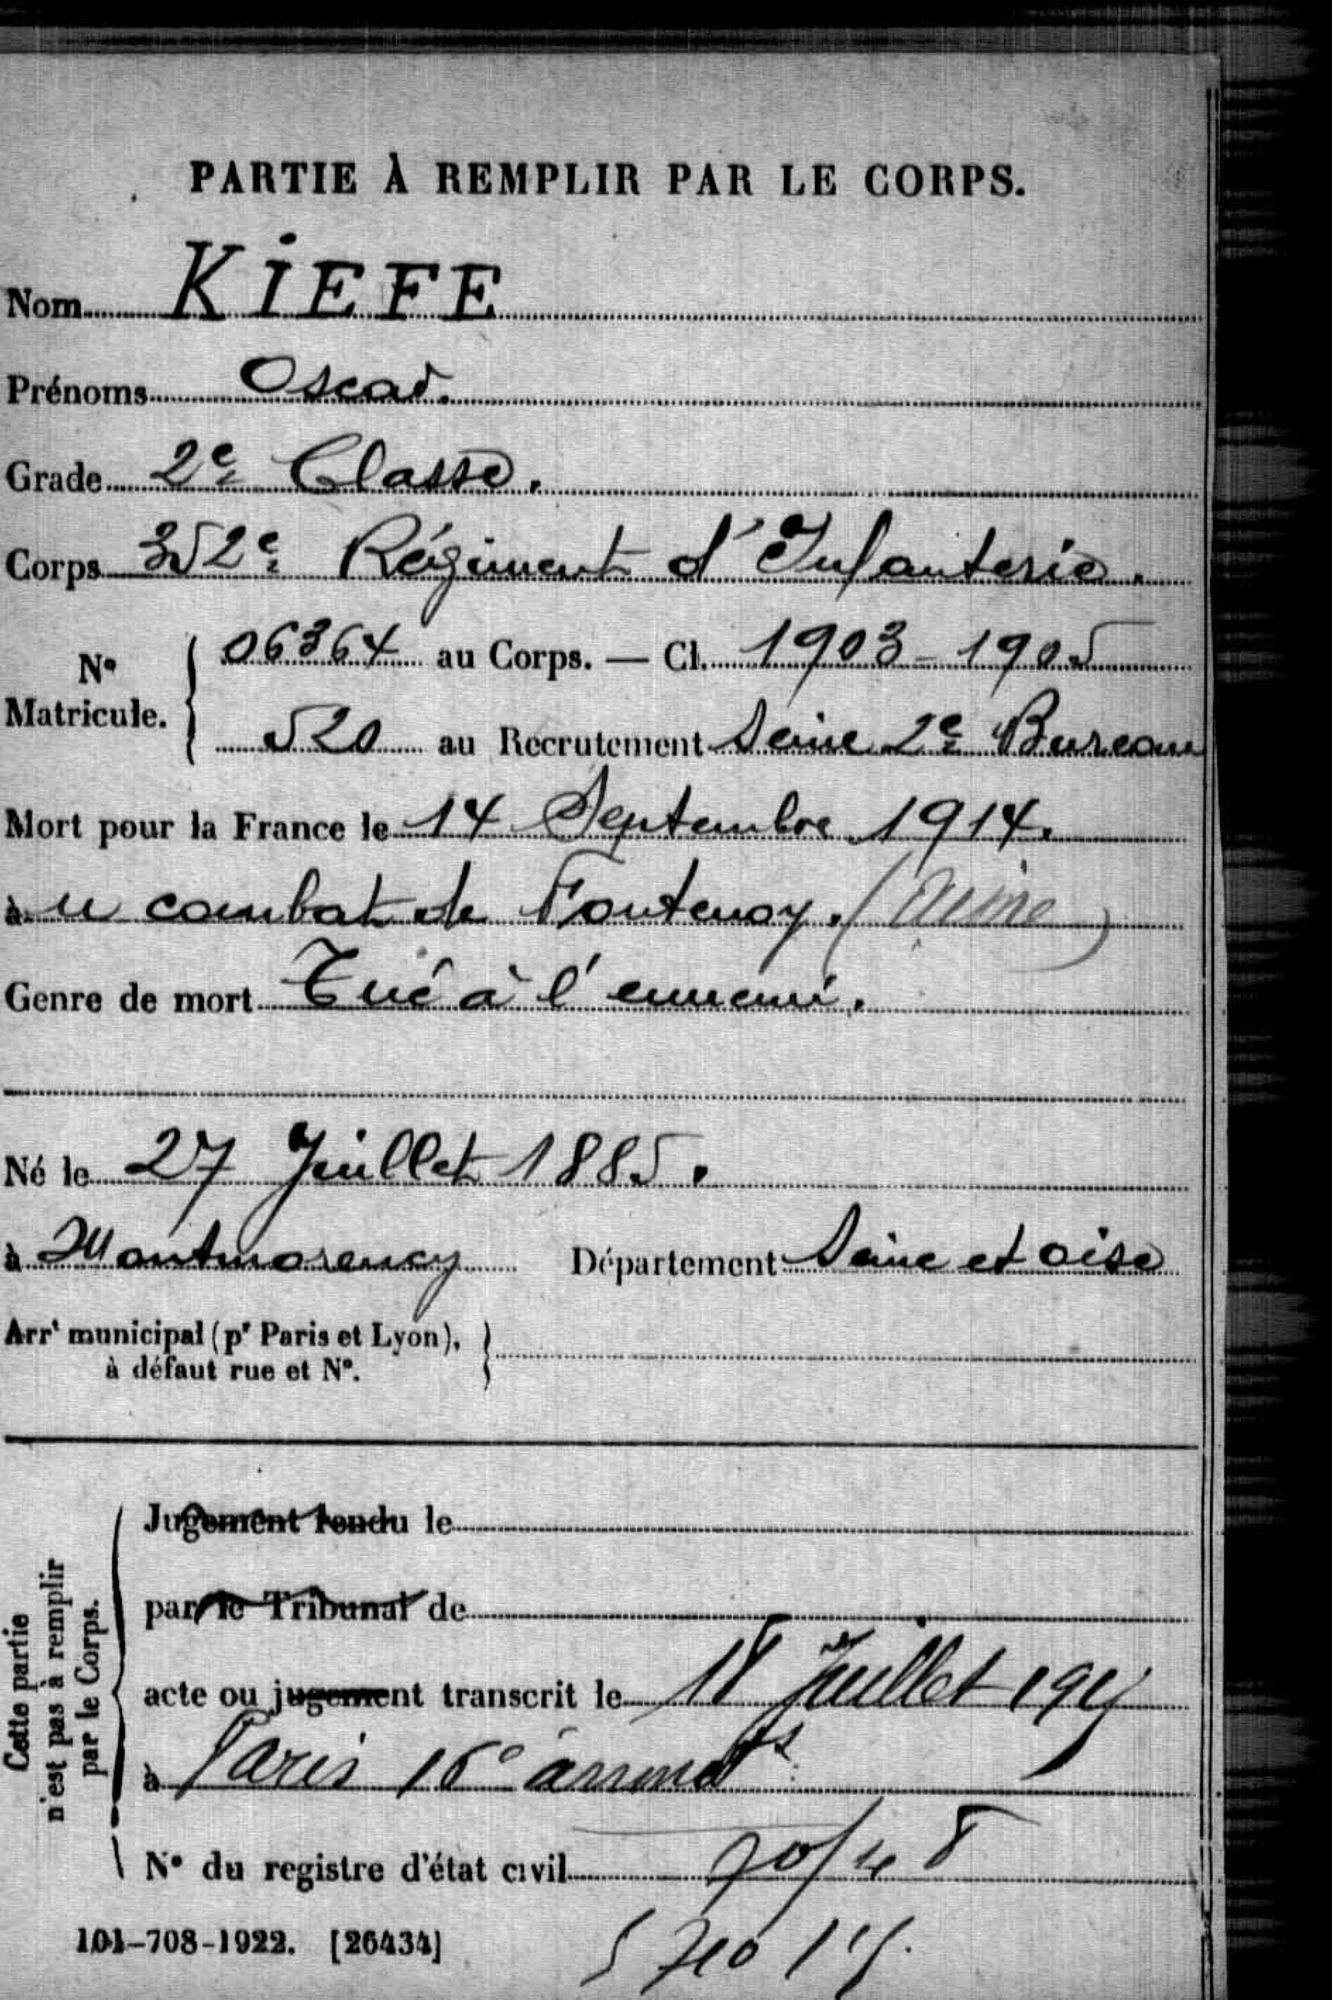 PARTIE À REMPLIR PAR LE CORPS.
Nom KIEFE
Prénoms Oscar.
Grade 2e Classe.
Corps 352e Régiment d'Infanterie.
No Matricule. 06364 au Corps. — Cl. 1903-1905
520 au Recrutement Seine 2e Bureau
Mort pour la France le 14 Septembre 1914.
à u combat de Fontenoy. (Aisne)
Genre de mort Tué à l'ennemi.
Né le 27 Juillet 1885.
à Montmorency Département Seine et oise
Arrt municipal (pr Paris et Lyon), à défaut rue et No.
Cette partie n'est pas à remplir par le Corps.
Jugement rendu le
par le Tribunal de
acte ou jugement transcrit le 18 Juillet
à Paris 16e
No du registre d'état civil
101-708-1922. [26434]